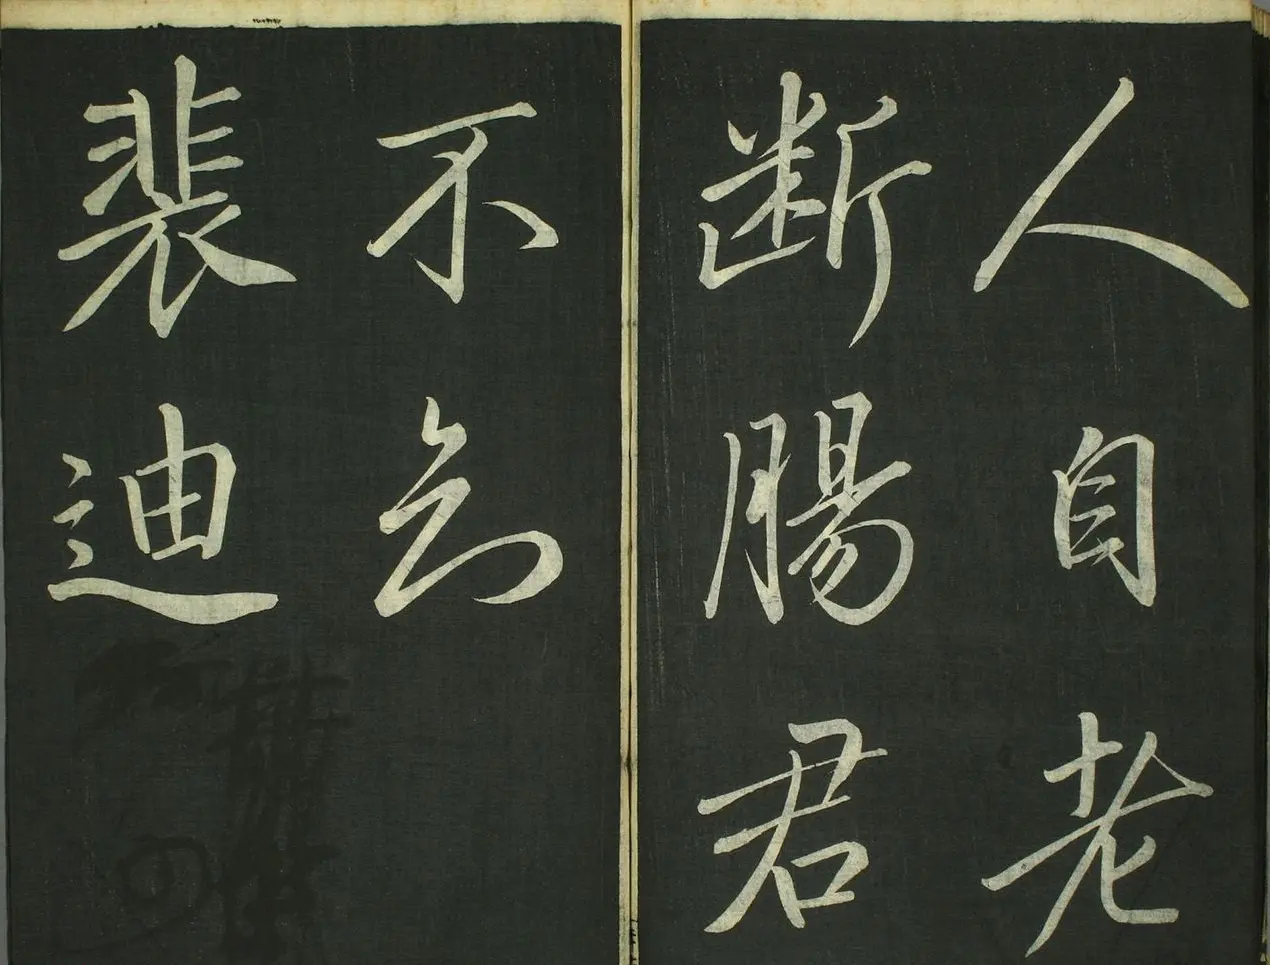 人自老
断腸君
不知
裴迪